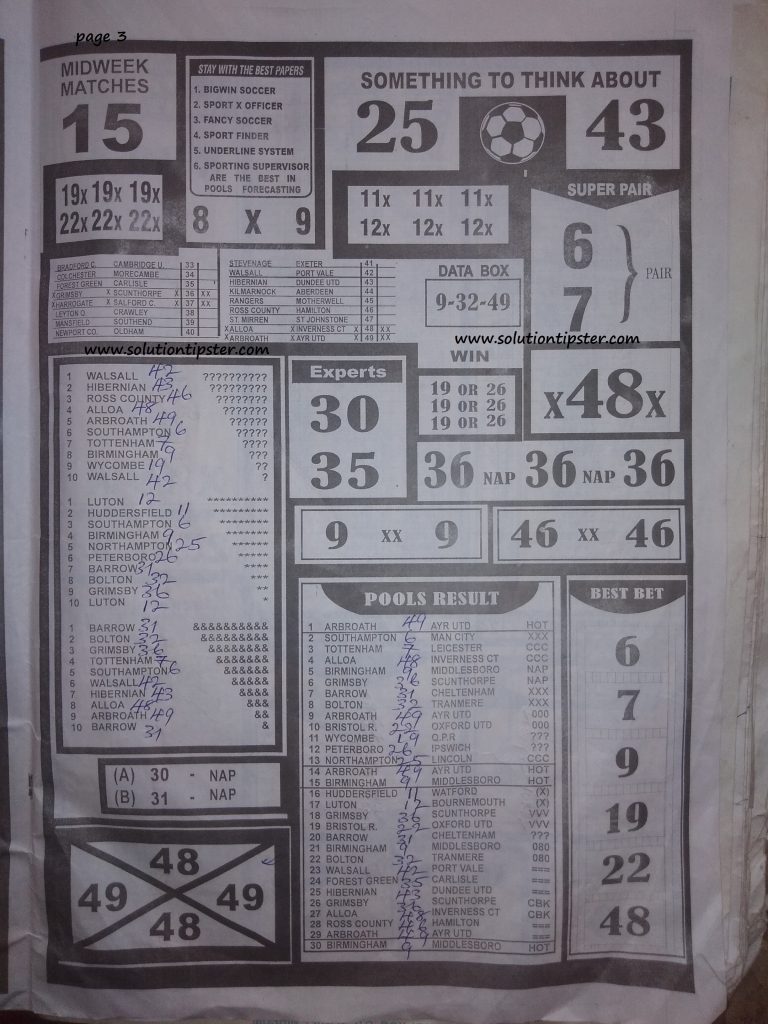 page 3
MIDWEEK
MATCHES
15
STAY WITH THE BEST PAPERS
1. BIGWIN SOCCER
2. SPORT X OFFICER
3. FANCY SOCCER
4. SPORT FINDER
5. UNDERLINE SYSTEM
6. SPORTING SUPERVISOR
ARE THE BEST IN
POOLS FORECASTING
8 X 9
SOMETHING TO THINK ABOUT
25 43
19x 19x 19x
22x 22x 22x
11x 11x 11x
12x 12x 12x
SUPER PAIR
6
7
PAIR
BRADFORD C. CAMBRIDGE U. 33
COLCHESTER MORECAMBE 34
FOREST GREEN CARLISLE 35
X GRIMSBY X SCUNTHORPE X 36 XX
X HARROGATE X SALFORD C. X 37 XX
LEYTON O. CRAWLEY 38
MANSFIELD SOUTHEND 39
NEWPORT CO. OLDHAM 40
STEVENAGE EXETER 41
WALSALL PORT VALE 42
HIBERNIAN DUNDEE UTD 43
KILMARNOCK ABERDEEN 44
RANGERS MOTHERWELL 45
ROSS COUNTY HAMILTON 46
ST. MIRREN ST JOHNSTONE 47
X ALLOA X INVERNESS CT X 48 XX
X ARBROATH X AYR UTD X 49 XX
DATA BOX
9-32-49
www.solutiontipster.com
www.solutiontipster.com
1 WALSALL 42 ??????????
2 HIBERNIAN 43 ?????????
3 ROSS COUNTY 46 ????????
4 ALLOA 48 ???????
5 ARBROATH 49 ??????
6 SOUTHAMPTON 6 ?????
7 TOTTENHAM 7 ????
8 BIRMINGHAM 9 ???
9 WYCOMBE 19 ??
10 WALSALL 42 ?
1 LUTON 12 **********
2 HUDDERSFIELD 11 *********
3 SOUTHAMPTON 6 ********
4 BIRMINGHAM 9 *******
5 NORTHAMPTON 25 ******
6 PETERBORO 26 *****
7 BARROW 31 ****
8 BOLTON 32 ***
9 GRIMSBY 36 **
10 LUTON 12 *
1 BARROW 31 &&&&&&&&&&
2 BOLTON 32 &&&&&&&&&
3 GRIMSBY 36 &&&&&&&&
4 TOTTENHAM 7 &&&&&&&
5 SOUTHAMPTON 6 &&&&&&
6 WALSALL 42 &&&&&
7 HIBERNIAN 43 &&&&
8 ALLOA 48 &&&
9 ARBROATH 49 &&
10 BARROW 31 &
Experts
30
35
WIN
19 OR 26
19 OR 26
19 OR 26
X48X
36 NAP 36 NAP 36
9 XX 9
46 XX 46
POOLS RESULT
1 ARBROATH 49 AYR UTD HOT
2 SOUTHAMPTON 6 MAN CITY XXX
3 TOTTENHAM 7 LEICESTER CCC
4 ALLOA 48 INVERNESS CT CCC
5 BIRMINGHAM 9 MIDDLESBORO NAP
6 GRIMSBY 36 SCUNTHORPE NAP
7 BARROW 31 CHELTENHAM XXX
8 BOLTON 32 TRANMERE XXX
9 ARBROATH 49 AYR UTD 000
10 BRISTOL R. 22 OXFORD UTD 000
11 WYCOMBE 19 Q.P.R ???
12 PETERBORO 26 IPSWICH ???
13 NORTHAMPTON 25 LINCOLN CCC
14 ARBROATH 49 AYR UTD HOT
15 BIRMINGHAM 9 MIDDLESBORO HOT
16 HUDDERSFIELD 11 WATFORD (X)
17 LUTON 12 BOURNEMOUTH (X)
18 GRIMSBY 36 SCUNTHORPE VVV
19 BRISTOL R. 22 OXFORD UTD VVV
20 BARROW 31 CHELTENHAM ???
21 BIRMINGHAM 9 MIDDLESBORO 080
22 BOLTON 32 TRANMERE 080
23 WALSALL 42 PORT VALE ===
24 FOREST GREEN 35 CARLISLE ===
25 HIBERNIAN 43 DUNDEE UTD ===
26 GRIMSBY 36 SCUNTHORPE CBK
27 ALLOA 48 INVERNESS CT CBK
28 ROSS COUNTY HAMILTON ===
29 ARBROATH 49 AYR UTD ===
30 BIRMINGHAM 9 MIDDLESBORO HOT
BEST BET
6
7
9
19
22
48
(A) 30 - NAP
(B) 31 - NAP
48
49 49
48